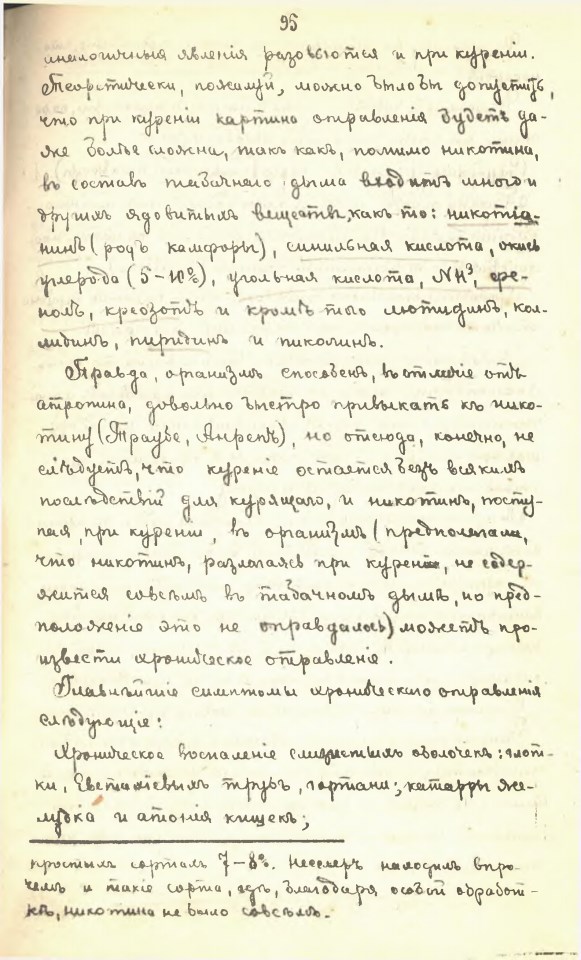 95
аналогичныя явленія разовьются и при куреніи.
Теоретически, пожалуй, можно было бы допустить,
что при куреніи картина отравленія будетъ да-
же болѣе сложна, такъ какъ, помимо никотина,
въ составъ табачнаго дыма входитъ много и
другихъ ядовитыхъ веществъ, какъ то: никотіа-
нинъ (родъ камфоры), синильная кислота, окись
углерода (5-10%), угольная кислота, NH³, фе-
нолъ, креозотъ и кромѣ того лютидинъ, кол-
лидинъ, пиридинъ и пиколинъ.
Правда, организмъ способенъ, въ отличіе отъ
атропина, довольно быстро привыкать къ нико-
тину (Траубе, Анрепъ), но отсюда, конечно, не
слѣдуетъ, что куреніе остается безъ всякихъ
послѣдствій для курящаго, и никотинъ, посту-
пая, при куреніи, въ организмъ (предполагали,
что никотинъ, разлагаясь при куреніи, не содер-
жится совсѣмъ въ табачномъ дымѣ, но пред-
положеніе это не оправдалось) можетъ про-
извести хроническое отравленіе.
Главнѣйшіе симптомы хроническаго отравленія
слѣдующіе:
Хроническое воспаленіе слизистыхъ оболочекъ: глот-
ки, Евстахіевыхъ трубъ, гортани; катарры же-
лудка и атонія кишекъ;
простыхъ сортахъ 7-8%. Несслеръ находилъ впро-
чемъ и такіе сорта, гдѣ, благодаря особой обработ-
кѣ, никотина не было совсѣмъ.